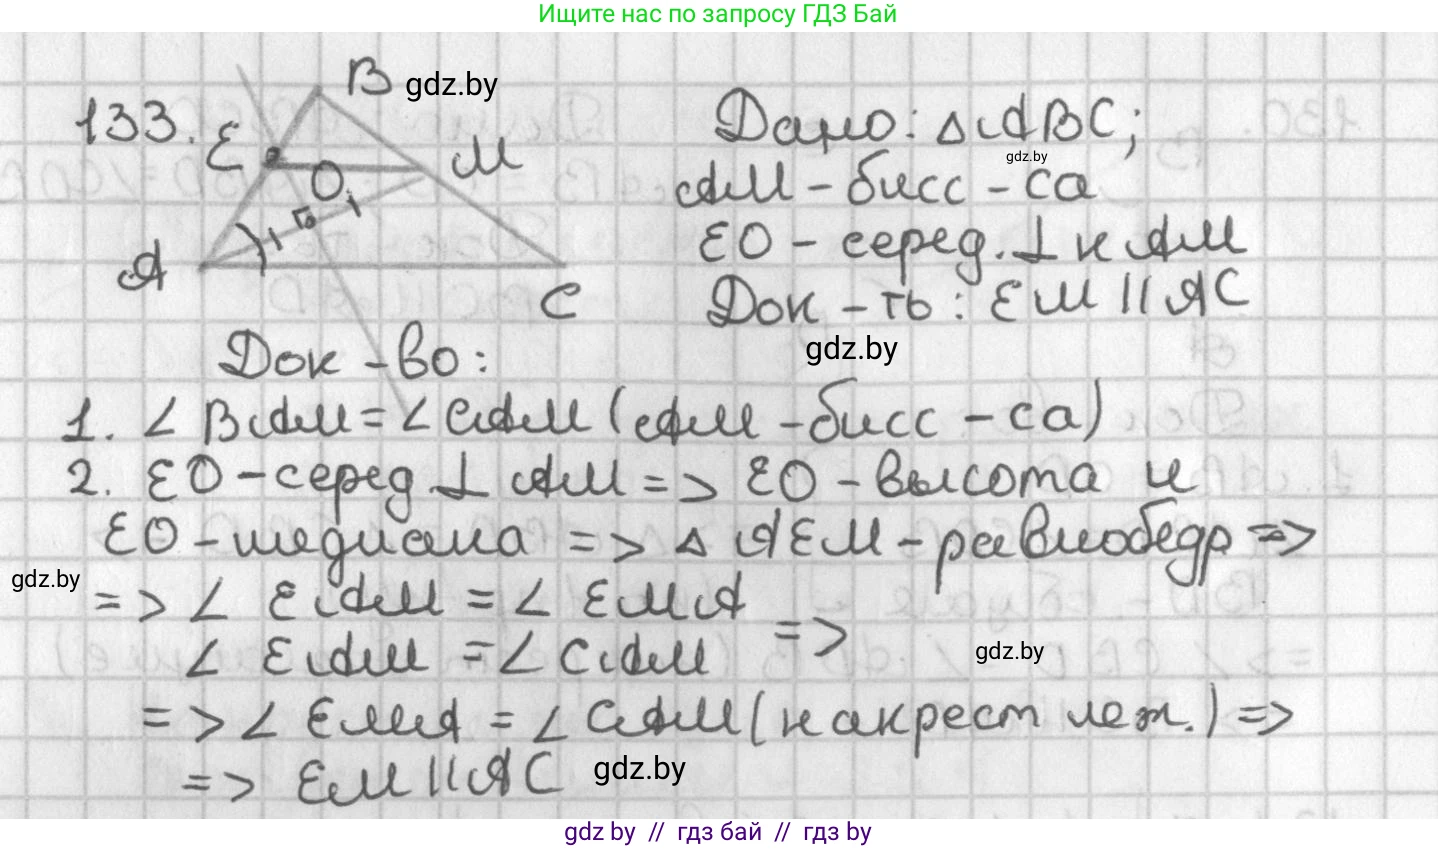 Ищите нас по запросу ГДЗ Бай
133.
B
gdz.by
E
M
O
A
C
Дано: △ABC;
gdz.by
AM - бисс - са
EO - серед. ⊥ к AM
Док - ть: EM || AC
gdz.by
Док - во:
1. ∠ BAM = ∠ CAM (AM - бисс - са)
2. EO - серед ⊥ AM => EO - высота и
EO - медиана => △ AEM - равнобедр =>
gdz.by
=> ∠ EAM = ∠ EMA
∠ EAM = ∠ CAM =>
gdz.by
=> ∠ EMA = ∠ CAM (накрест леж.) =>
=> EM || AC
gdz.by
gdz by // гдз бай // гдз by